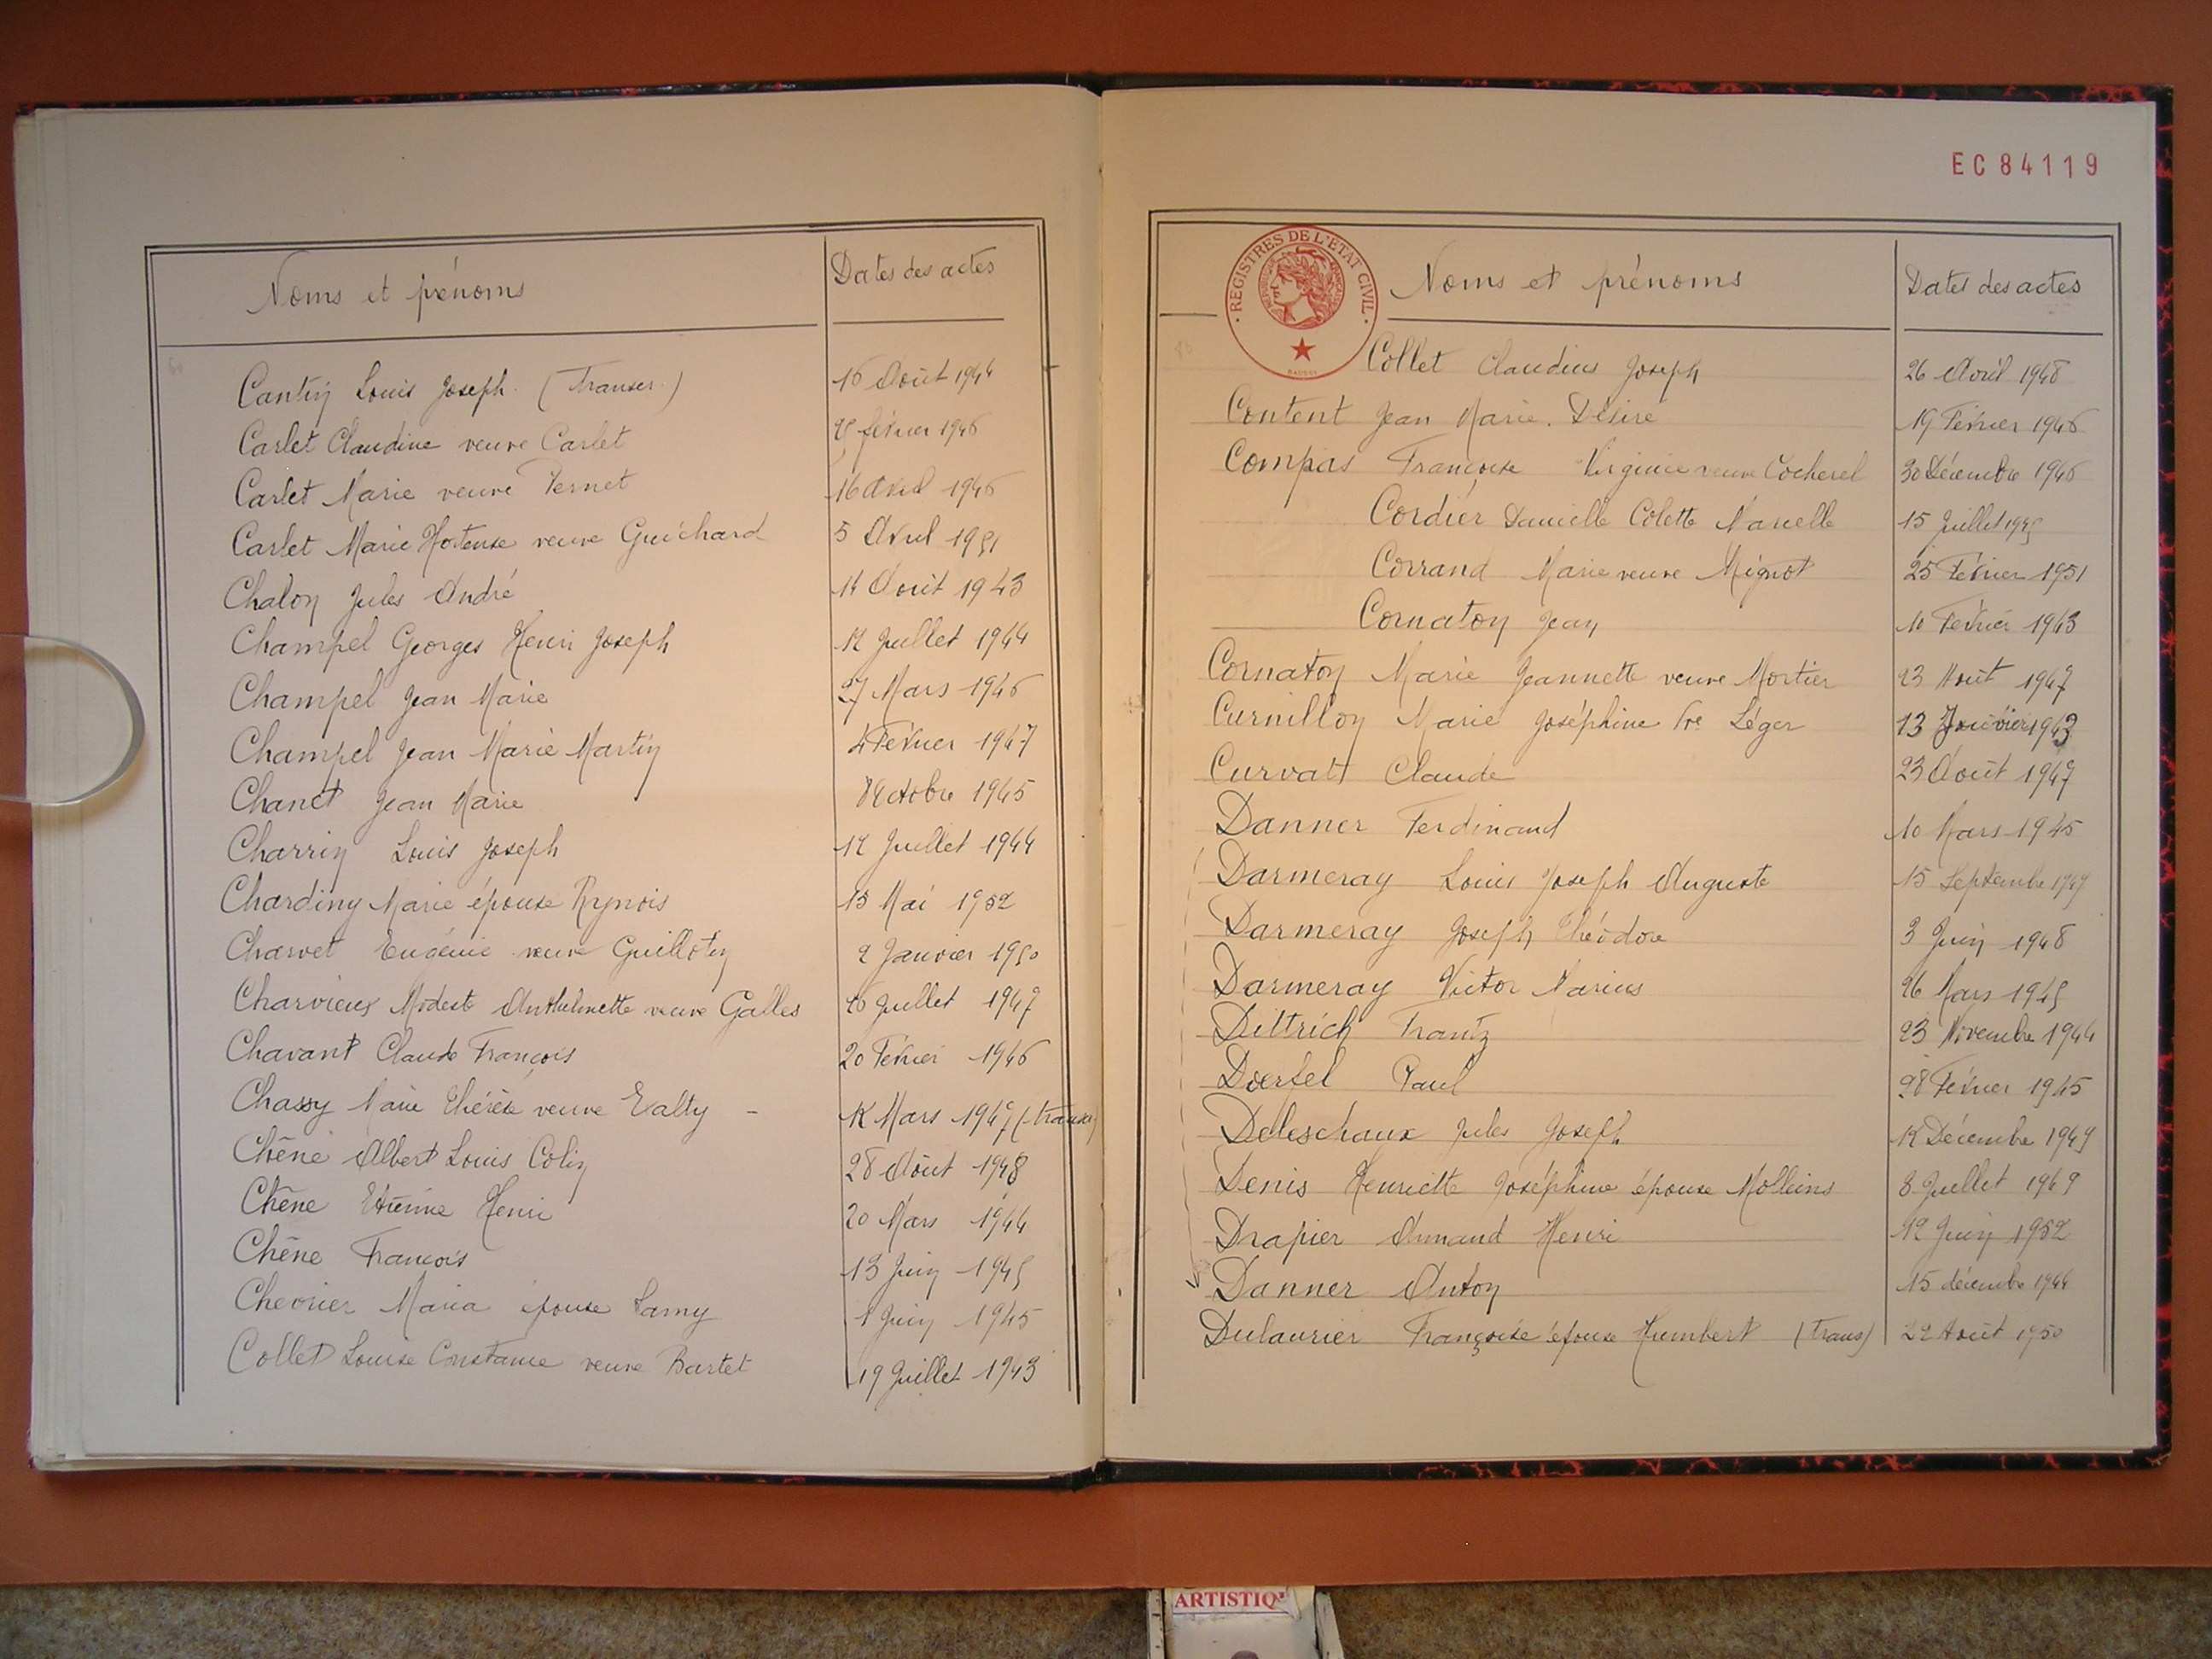 Noms et prénoms
Dates des actes
Cantin Louis Joseph. (Transcr.)
16 Août 1944
Carlet Claudine veuve Carlet
février 1946
Carlet Marie veuve Pernet
16 Avril 1946
Carlet Marie Hortense veuve Guichard
5 Avril 1951
Chalon Jules André
14 Août 1943
Champel Georges Henri Joseph
12 Juillet 1944
Champel Jean Marie
27 Mars 1946
Champel Jean Marie Martin
4 Février 1947
Chanet Jean Marie
Octobre 1945
Charrin Louis Joseph
12 Juillet 1944
Chardiny Marie épouse
15 Mai 1952
Charvet Eugénie veuve Guillotin
2 Janvier 1950
Charvieux Modeste Anthelmette veuve Galles
16 Juillet 1947
Chavant Claude François
20 Février 1946
Chassy Marie Thérèse veuve Evalty -
Mars 1947 (transcr)
Chêne Albert Louis Colin
28 Août 1948
Chêne Etienne Henri
20 Mars 1944
Chêne François
13 Juin 1945
Chevrier Maria épouse Lamy
1 Juin 1945
Collet Louise Constance veuve Bartet
19 Juillet 1943
EC 84119
REGISTRES DE L'ÉTAT CIVIL
Noms et prénoms
Dates des actes
Collet Claudius Joseph
26 Avril 1948
Content Jean Marie. Désiré
19 Février 1946
Compas Françoise Virginie veuve Cocherel
30 Décembre 1946
Cordier Danielle Colette Marcelle
15 Juillet
Corrand Marie veuve Mignot
25 Février 1951
Cornaton Jean
10 Février 1943
Cornaton Marie Jeannette veuve Mortier
23 Août 1947
Curnillon Marie Joséphine Vve Léger
13 Janvier 1943
Curvat Claude
23 Août 1947
Danner Ferdinand
10 Mars 1945
Darmeray Louis Joseph Auguste
15 Septembre 1949
Darmeray Joseph Théodore
3 Juin 1948
Darmeray Victor Marius
26 Mars 1945
Dittrich Frantz
23 Novembre 1944
Doerfel Paul
28 Février 1945
Deleschaux Jules Joseph
Décembre 1949
Denis Henriette Joséphine épouse Molleins
8 Juillet 1949
Drapier Armand Henri
12 Juin 1952
Danner Anton
15 décembre 1944
Dulaurier Françoise épouse Humbert (Trans)
22 Août 1950
ARTISTIQ